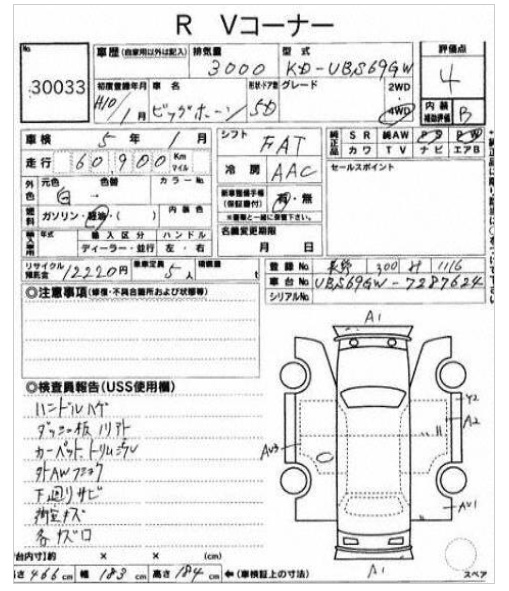 R Vコーナー
No.
30033
車歴 (自家用以外は記入) 排気量 3000 型式 KD-UBS69GW
評価点 4
初度登録年月 H10/1月 車名 ビッグホーン 形状・ドア数 5D グレード
2WD
4WD
内装補助評価 B
車検 5年 1月
走行 60900 Km マイル
外色 元色 白 → 色替 カラーNo.
燃料 ガソリン・軽油・( ) 内装色
輸入車用 年式 輸入区分 ハンドル
ディーラー・並行 左・右
シフト FAT
冷房 AAC
新車整備手帳(保証書付) 有・無
※書類と一緒に保管下さい。
名義変更期限
月 日
純正品 SR 純AW PS PW
カワ TV ナビ エアB
セールスポイント
リサイクル預託金 12220円 乗車定員 5人 積載量 t
登録No. 長野 300 1116
車台No. UBS69GW-7287624
シリアルNo.
◎注意事項(修復・不具合箇所および状態等)
◎検査員報告(USS使用欄)
ハンドルハゲ
ダッシュ板
カーペット、トリム
外AW
下廻りサビ
キズ
各キズ
A1
Y2
A2
AU3
AU1
A1
スペア
台内寸)約 × × (cm)
さ 466 cm 幅 183 cm 高さ 184 cm ←(車検証上の寸法)